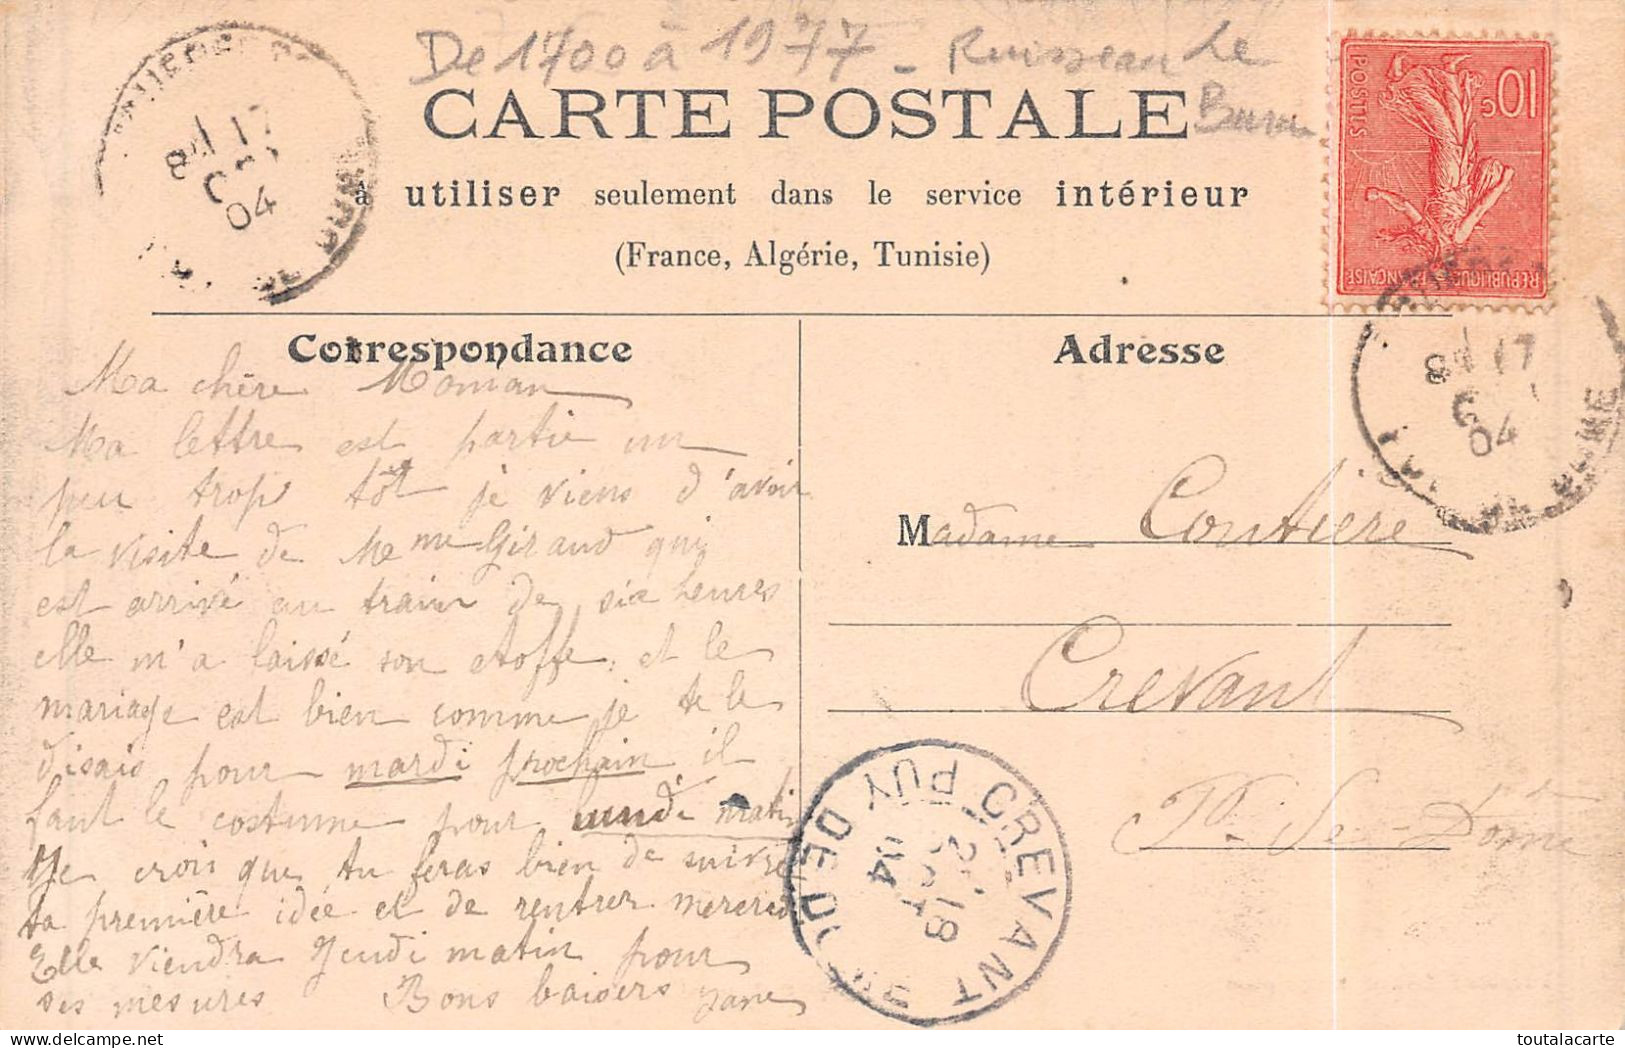 De 1700 à 1977 - Ruisseau Le
Buron
CARTE POSTALE
à utiliser seulement dans le service intérieur
(France, Algérie, Tunisie)
10c
POSTES
REPUBLIQUE FRANÇAISE
17
04
Correspondance
Ma chère Moman
Ma lettre est partie un
peu trop tôt je viens d'avoir
la visite de Mme Giraud qui
est arrivé au train de six heures
elle m'a laissé son étoffe, et le
mariage est bien comme je te le
disais pour mardi prochain il
faut le costume pour lundi matin
Je crois que tu feras bien de suivre
ta première idée et de rentrer mercredi
Elle viendra Jeudi matin pour
ses mesures Bons baisers Jane
Adresse
17
04
Madame Coutière
Crevant
Py-de-Dôme
CREVANT
PUY DE DOME
18
OCT
04
toutalacarte